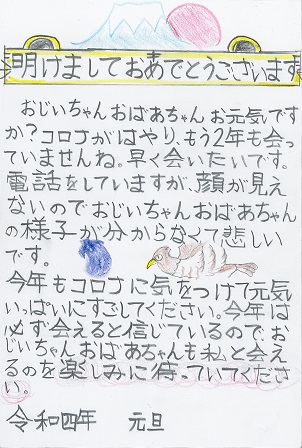 明けましておめでとうございます
おじいちゃんおばあちゃんお元気です
か?コロナがはやり、もう2年も会っ
ていませんね。早く会いたいです。
電話をしていますが、顔が見え
ないのでおじいちゃんおばあちゃん
の様子が分からなくて悲しい
です。
今年もコロナに気をつけて元気
いっぱいにすごしてください。今年は
必ず会えると信じているのでお
じいちゃんおばあちゃんも私と会え
るのを楽しみに待っていてくださ
い。
令和四年 元旦